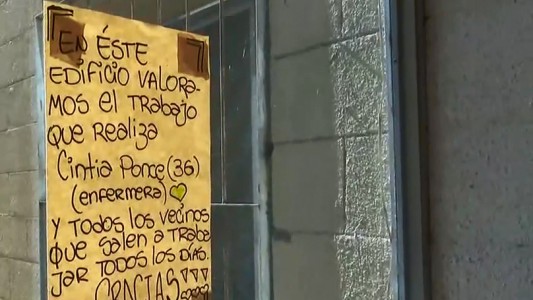 EN ÉSTE
EDIFICIO VALORA-
MOS EL TRABAJO
QUE REALIZA
CINTIA PONCE (36)
(ENFERMERA)
Y TODOS LOS VECINOS
QUE SALEN A TRABA
JAR TODOS LOS DÍAS.
GRACIAS